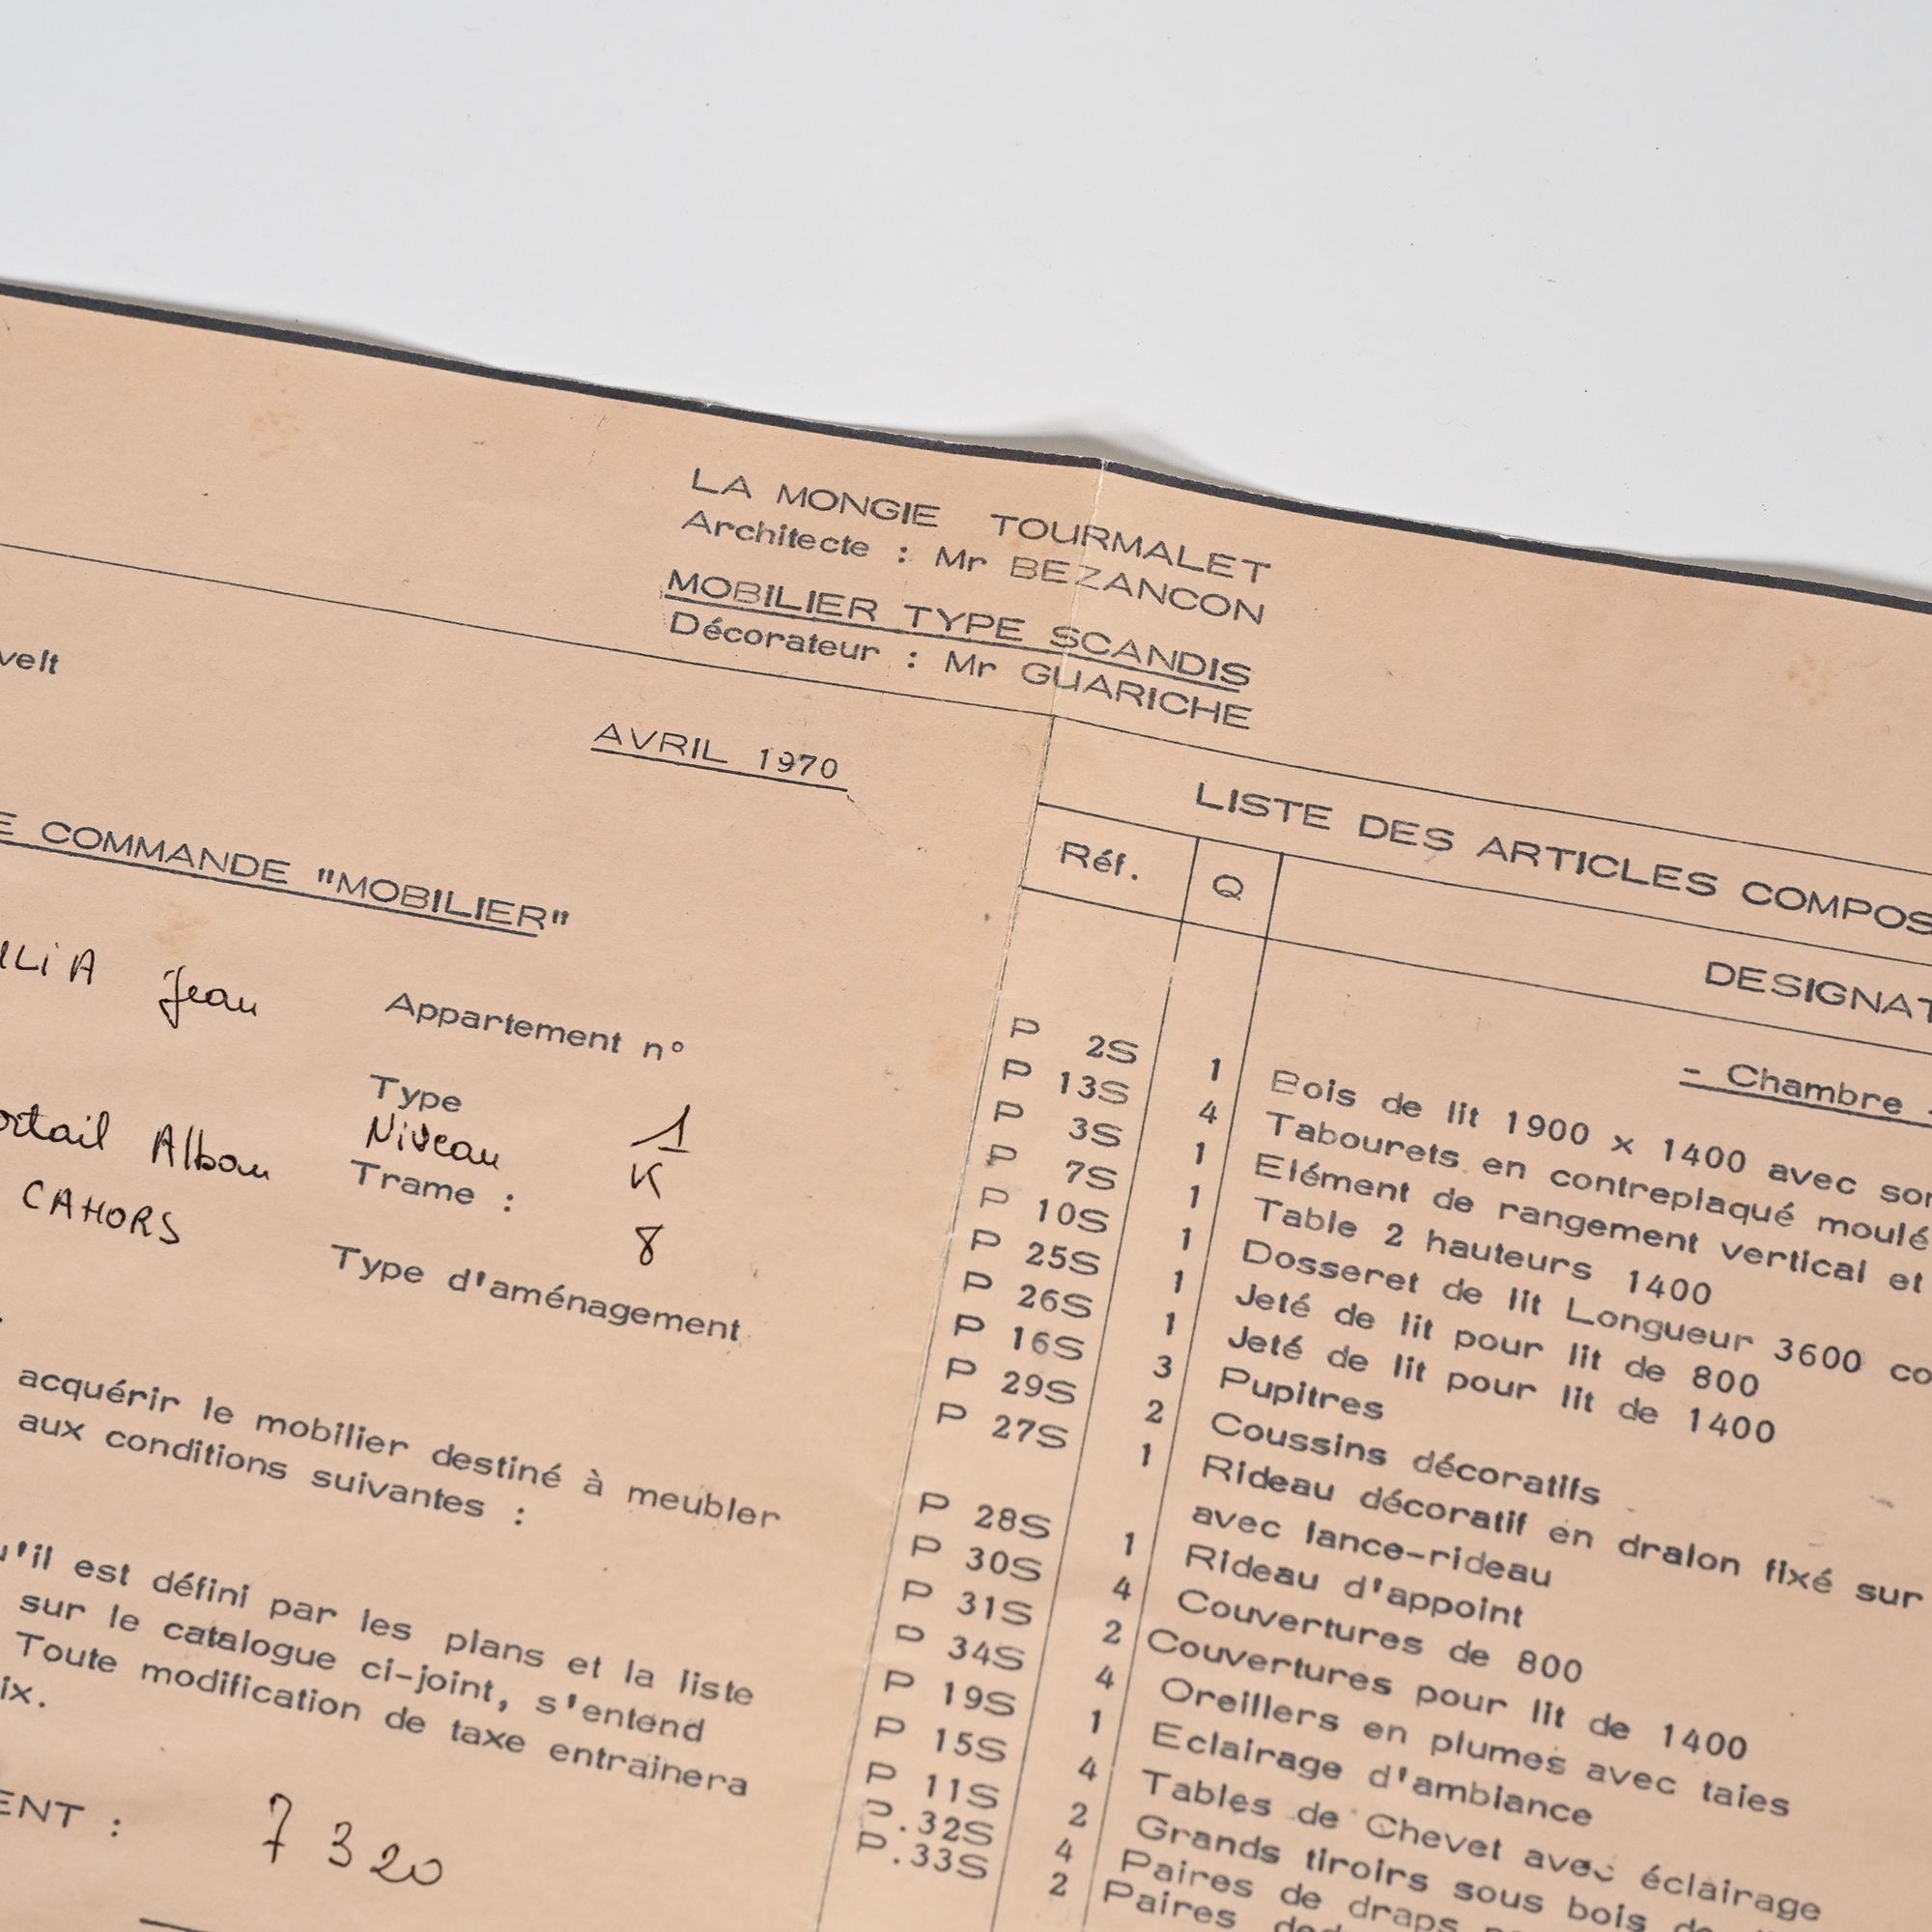 LA MONGIE TOURMALET
Architecte : Mr BEZANCON
MOBILIER TYPE SCANDIS
Décorateur : Mr GUARICHE
velt
AVRIL 1970
E COMMANDE "MOBILIER"
LiA Jean
Appartement n°
Type 1
ortail Alban
Niveau K
CAHORS
Trame : 8
Type d'aménagement
acquérir le mobilier destiné à meubler
aux conditions suivantes :
u'il est défini par les plans et la liste
sur le catalogue ci-joint, s'entend
Toute modification de taxe entrainera
ix.
ENT : 7 320
LISTE DES ARTICLES COMPOS
Réf. Q DESIGNAT
- Chambre
P 2S 1 Bois de lit 1900 x 1400 avec som
P 13S 4 Tabourets en contreplaqué moulé
P 3S 1 Elément de rangement vertical et
P 7S 1 Table 2 hauteurs 1400
P 10S 1 Dosseret de lit Longueur 3600 co
P 25S 1 Jeté de lit pour lit de 800
P 26S 1 Jeté de lit pour lit de 1400
P 16S 3 Pupitres
P 29S 2 Coussins décoratifs
P 27S 1 Rideau décoratif en dralon fixé sur
avec lance-rideau
P 28S 1 Rideau d'appoint
P 30S 4 Couvertures de 800
P 31S 2 Couvertures pour lit de 1400
P 34S 4 Oreillers en plumes avec taies
P 19S 1 Eclairage d'ambiance
P 15S 4 Tables de Chevet avec éclairage
P 11S 2 Grands tiroirs sous bois de
P.32S 4 Paires de draps
P.33S 2 Paires